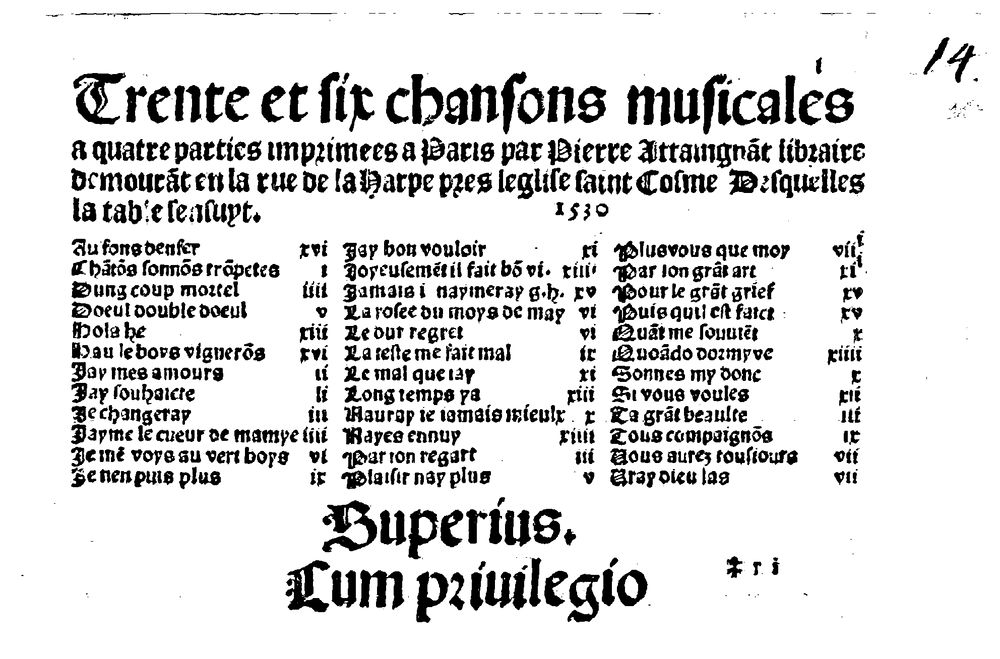 14.
Trente et six chansons musicales
a quatre parties imprimees a Paris par Pierre Attaingnāt libraire
demourāt en la rue de la Harpe pres leglise saint Cosme Desquelles
la table sensuyt. 1530
Au fons denfer xvi
Chātōs sonnōs trōpetes i
Dung coup mortel iiii
Doeul double doeul v
Hola he xiii
Hau le boys vignerōs xvi
Jay mes amours ii
Jay souhaicte ii
Je changeray iii
Jayme le cueur de mamye iiii
Je mē voys au vert boys vi
Je nen puis plus ix
Jay bon vouloir xi
Joyeusemēt il fait bō vi. xiiii
Jamais i naymeray g.h. xv
La rosee du moys de may vi
Le dur regret vi
La teste me fait mal ix
Le mal que iay xi
Long temps ya xiii
Nauray ie iamais mieulx x
Nayes ennuy xiiii
Par ton regart iii
Plaisir nay plus v
Plusvous que moy vii
Par ton grāt art xi
Pour le grāt grief xv
Puis quil est faict xv
Quāt me souuiēt x
Quoādo dormyve xiiii
Sonnes my donc x
Si vous voules xii
Ta grāt beaulte iii
Tous compaignōs ix
Vous aurez tousiours vii
Vray dieu las vii
Superius.
Cum priuilegio